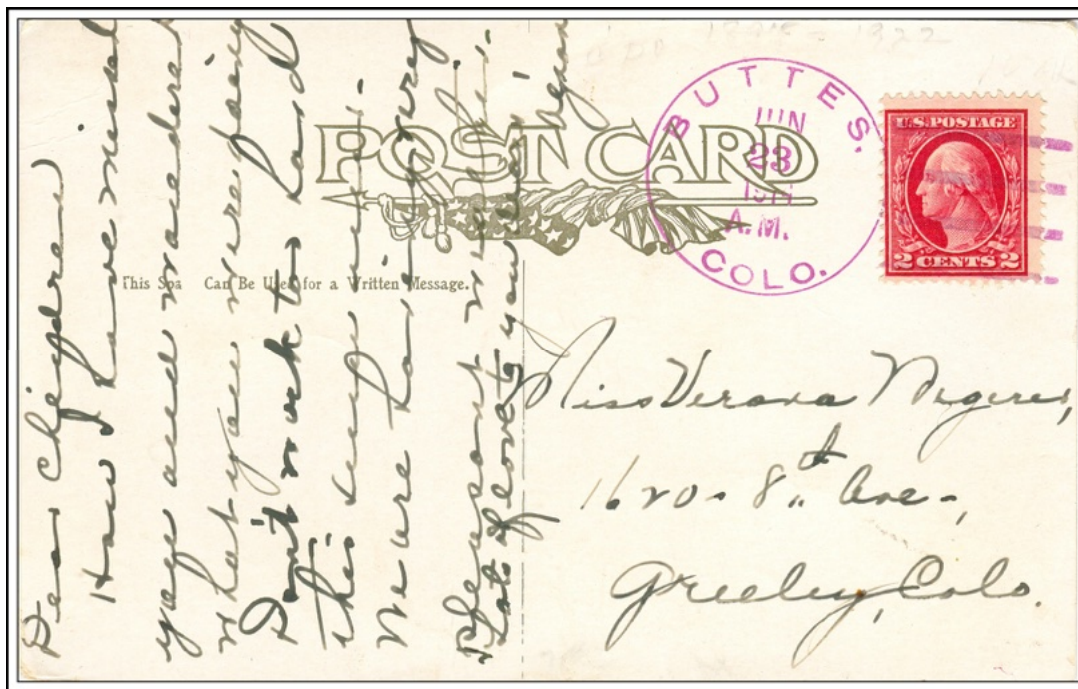 1895 - 1922
POST CARD
BUTTES.
JUN
23
A.M.
COLO.
U.S. POSTAGE
2 CENTS 2
This Spa Can Be Used for a Written Message.
Dear Children
How I have missed
you and wondered
what you were doing
Don't work to hard
this hot
We are having a very
pleasant
Lots of love to you
Miss Verona
1620 - 8th Ave -,
Greeley, Colo.